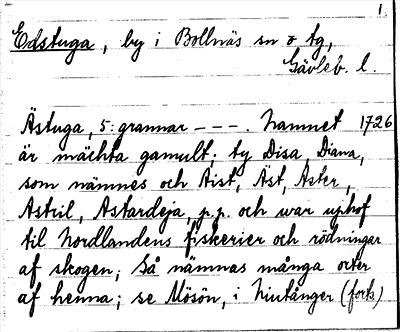 1.
Edstuga, by i Bollnäs sn o tg,
Gävleb. l.
Ästuga, 5: grannar – – – . Namnet 1726
är mächta gamult; ty Disa, Diana,
som nämnes och Aist, Äst, Aster,
Astril, Astardeja, p.p. och war uphof
til Nordlandens fiskerier och rödningar
af skogen; Så nämnas många orter
af henna; se Mösön, i Nintånger (forts)